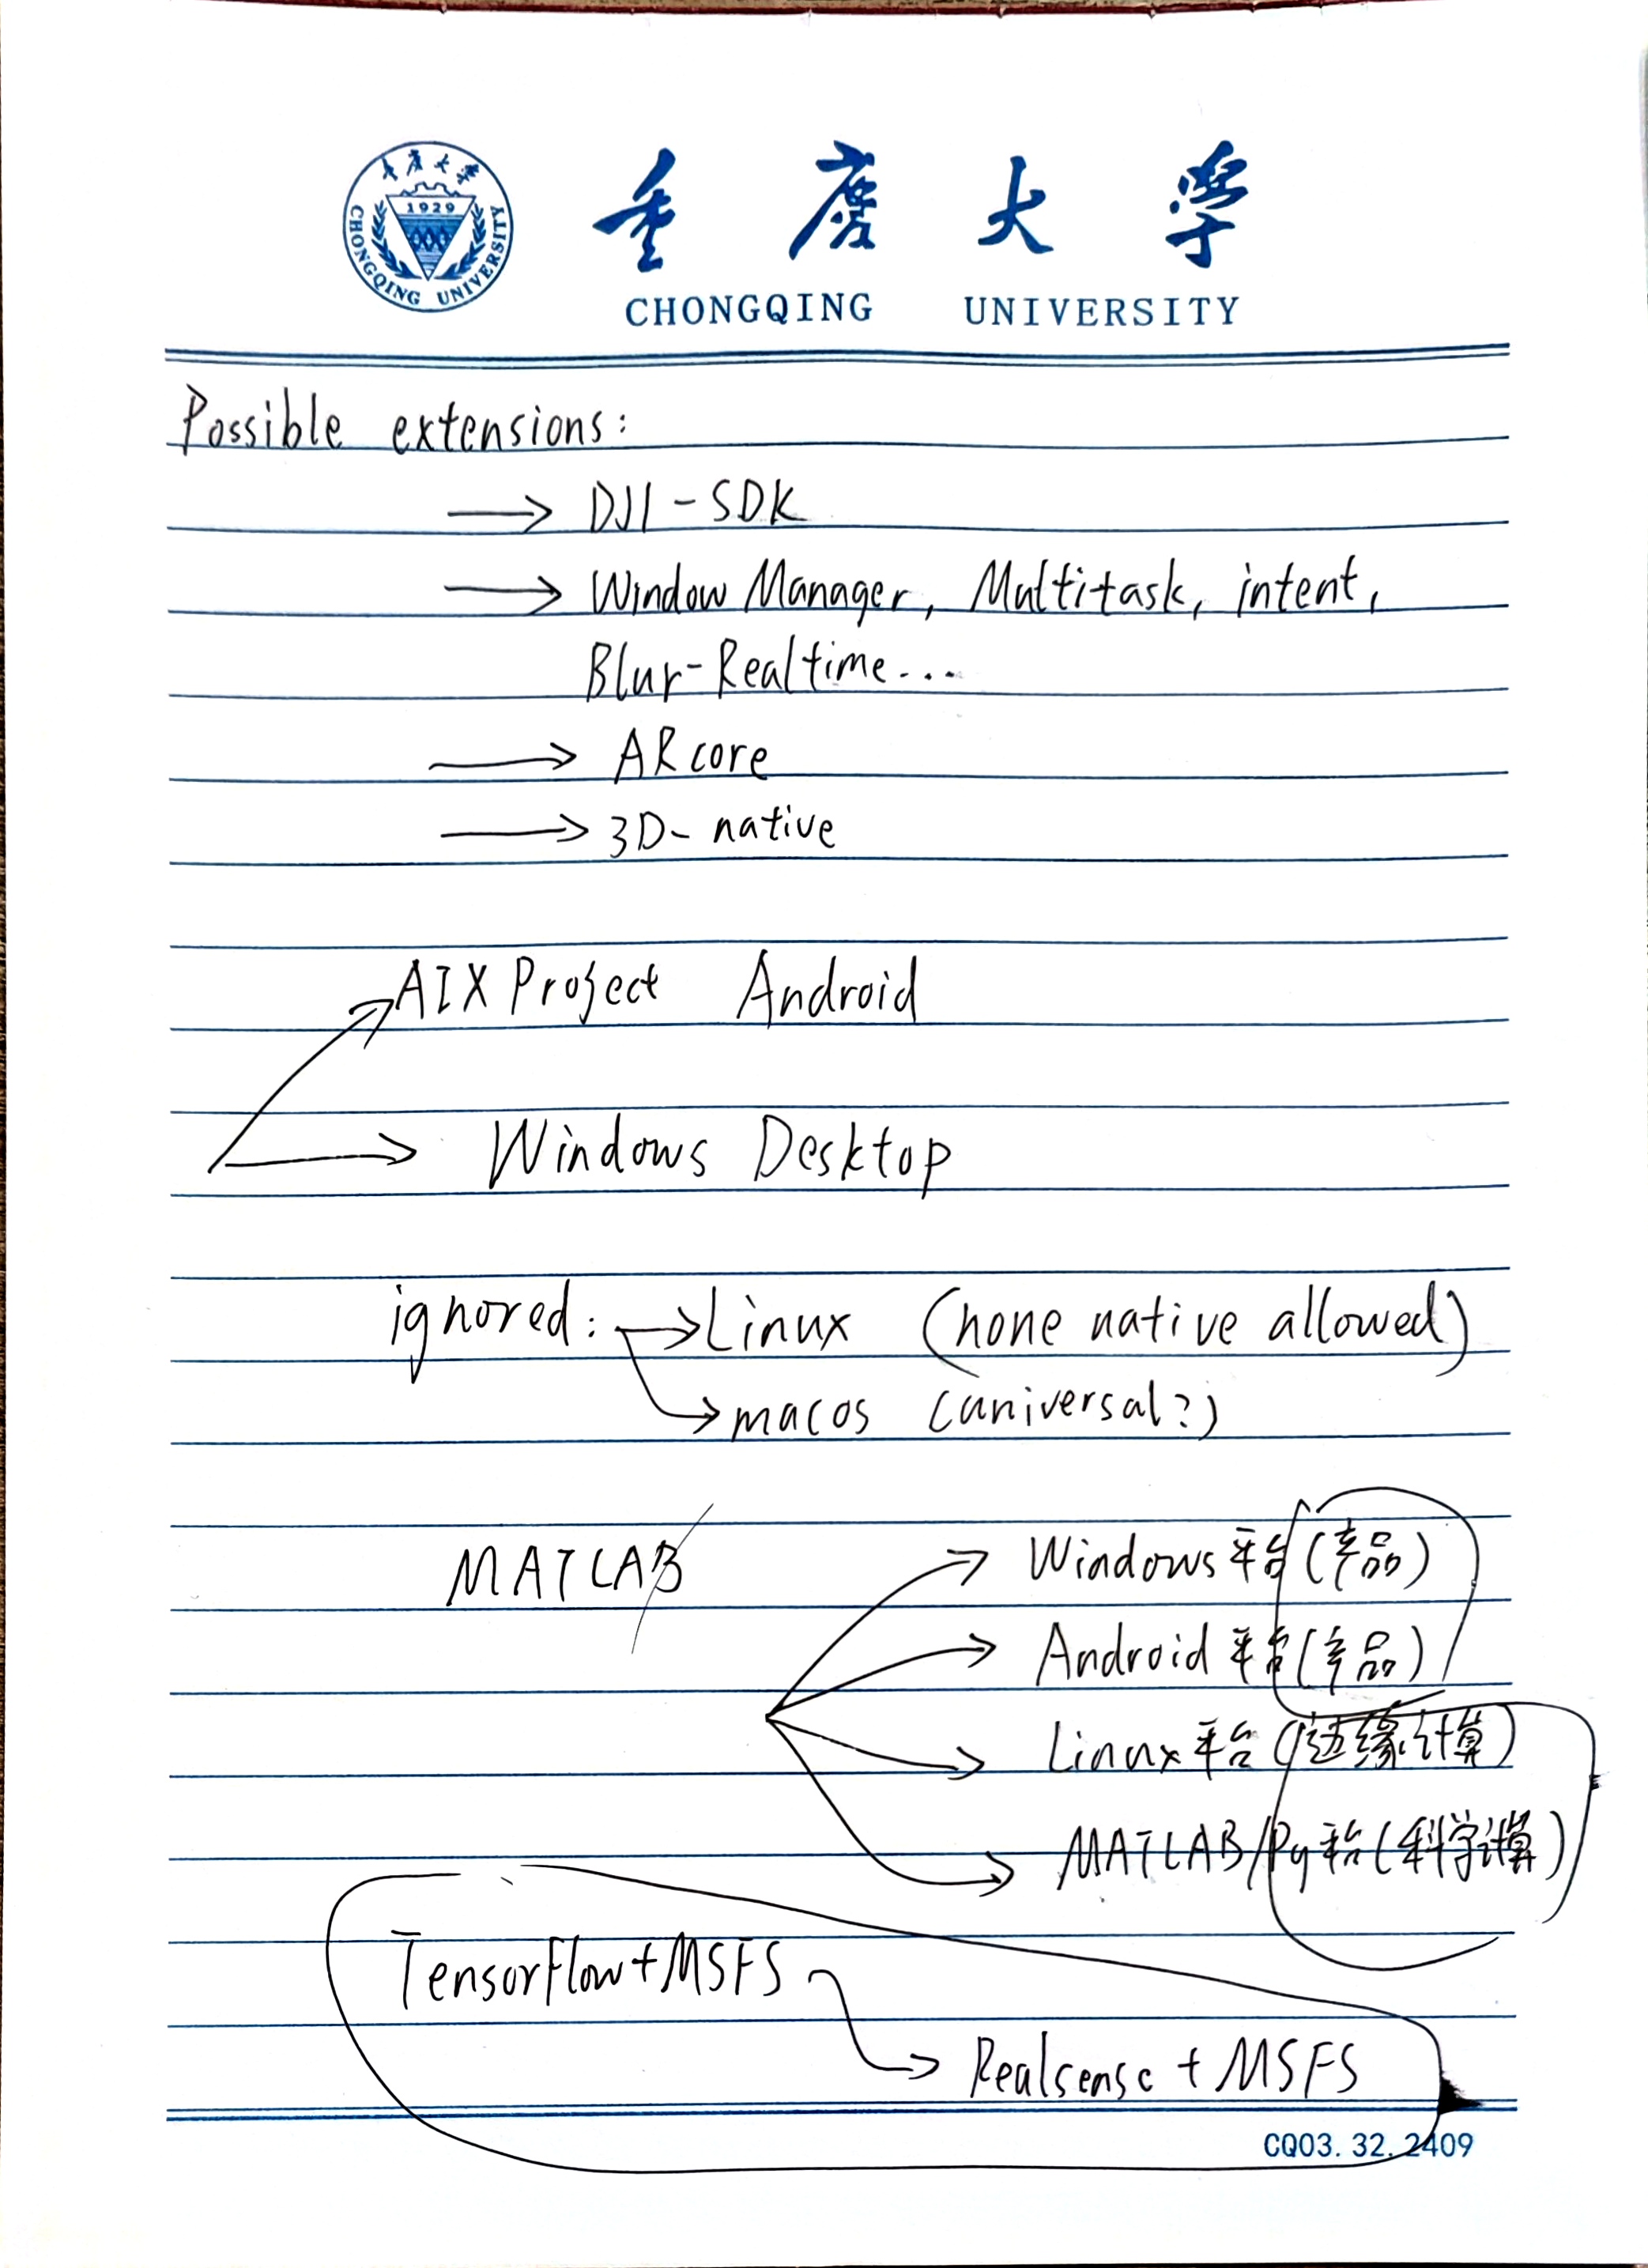 重庆大学
1929
CHONGQING UNIVERSITY
重庆大学
CHONGQING UNIVERSITY
Possible extensions:
→ DJI-SDK
→ Window Manager, Multitask, intent,
Blur-Realtime...
→ ARcore
→ 3D-native
AIX Project Android
→ Windows Desktop
ignored: →Linux (none native allowed)
→macos (universal?)
MATLAB
→ Windows平台(产品)
→ Android平台(产品)
→ Linux平台(边缘计算)
→ MATLAB/Py平台(科学计算)
Tensorflow+MSFS
→ Realsense+MSFS
CQ03.32.2409